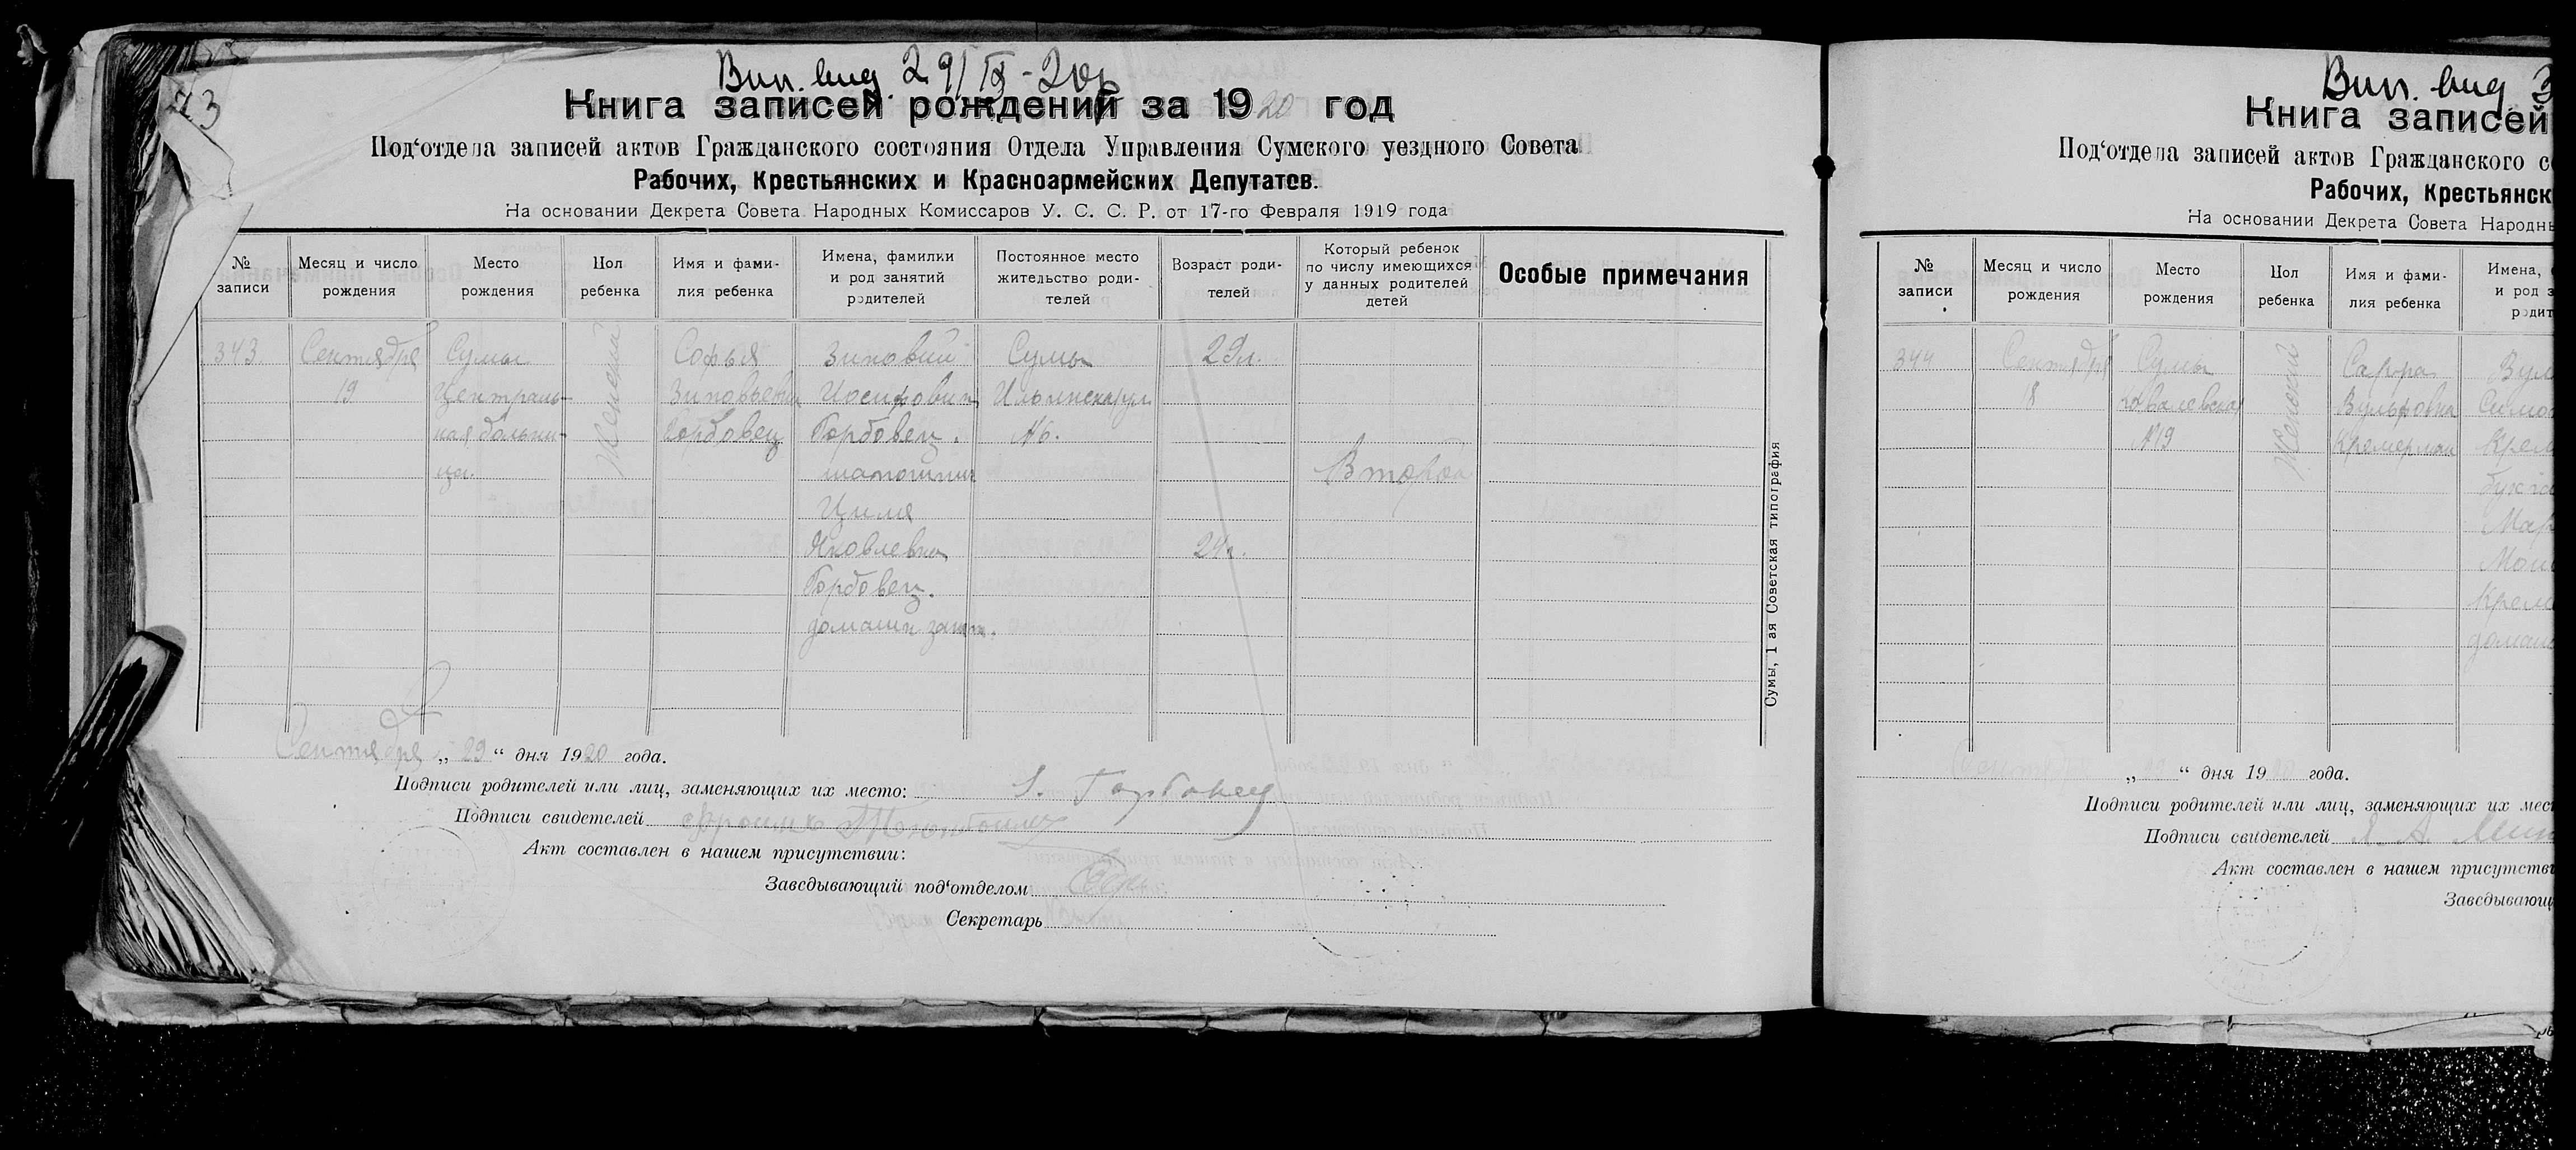 73
Вип. вид. 29/IX-20 р
Книга записей рождений за 1920 год
Под‘отдела записей актов Гражданского состояния Отдела Управления Сумского уездного Совета
Рабочих, Крестьянских и Красноармейских Депутатов.
На основании Декрета Совета Народных Комиссаров У. С. С. Р. от 17-го Февраля 1919 года
№ записи
Месяц и число рождения
Место рождения
Пол ребенка
Имя и фами-
лия ребенка
Имена, фамилки
и род занятий
родителей
Постоянное место
жительство роди-
телей
Возраст роди-
телей
Который ребенок
по числу имеющихся
у данных родителей
детей
Особые примечания
343
Сентября
19
Сумы
Централь-
ная больни-
ца.
Женский
Софья
Зиновьевна
Горбовец
Зиновий
Иосифович
Горбовец.
Циля
Яковлевна
Горбовец.
домашн. занят.
Сумы
Ильинская ул
№6.
29л.
24г.
Второй
Сумы, 1 ая Советская типография
Сентября „ 29 “ дня 1920 года.
Подписи родителей или лиц, заменяющих их место: Горбовец
Подписи свидетелей
Акт составлен в нашем присутствии:
Заведывающий под‘отделом
Секретарь
Вип. вид 3
Книга записей
Под‘отдела записей актов Гражданского со
Рабочих, Крестьянск
На основании Декрета Совета Народнь
№ записи
Месяц и число рождения
Место рождения
Пол ребенка
Имя и фами-
лия ребенка
Имена,
и род з
родит
344
Сентября
18
Сумы
Ковалевская
№19
Женский
Сарра
Вульфовна
Кремерман
Вул
Симо
Крем
бухга
Мар
Мои
Крем
домаш
Сентября „ 29 “ дня 1920 года.
Подписи родителей или лиц, заменяющих их мест
Подписи свидетелей
Акт составлен в нашем присутстви
Заведывающи